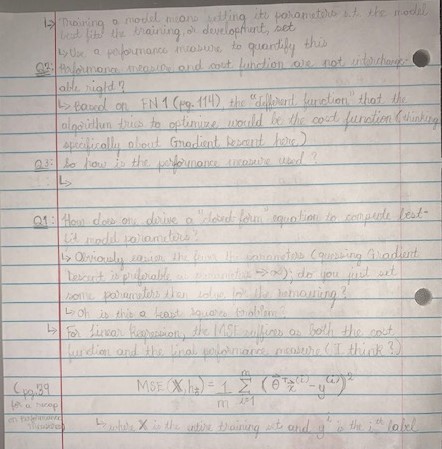 ↳ Training a model means setting its parameters s.t. the model
best fits the training, or development, set
↳ Use a performance measure to quantify this
Q2: Performance measure and cost function are not interchange-
able right?
↳ Based on FN 1 (pg. 114) the "different function" that the
algorithm tries to optimize would be the cost function (thinking
specifically about Gradient Descent here)
Q3: So how is the performance measure used?
↳
Q1: How does one derive a "closed form" equation to compute best-
fit model parameters?
↳ Obviously easier the fewer the parameters (guessing Gradient
Descent is preferable as parameters → ∞); do you just set
some parameters then solve for the remaining?
↳ Oh is this a least squares problem?
↳ For Linear Regression, the MSE suffices as both the cost
function and the final performance measure (I think?)
(pg. 39
for a recap
on performance
measures)
MSE(X, h_θ) = 1/m Σ_{i=1}^{m} (θ^T x^(i) - y^(i))²
↳ where X is the entire training set and y^i is the i^th label